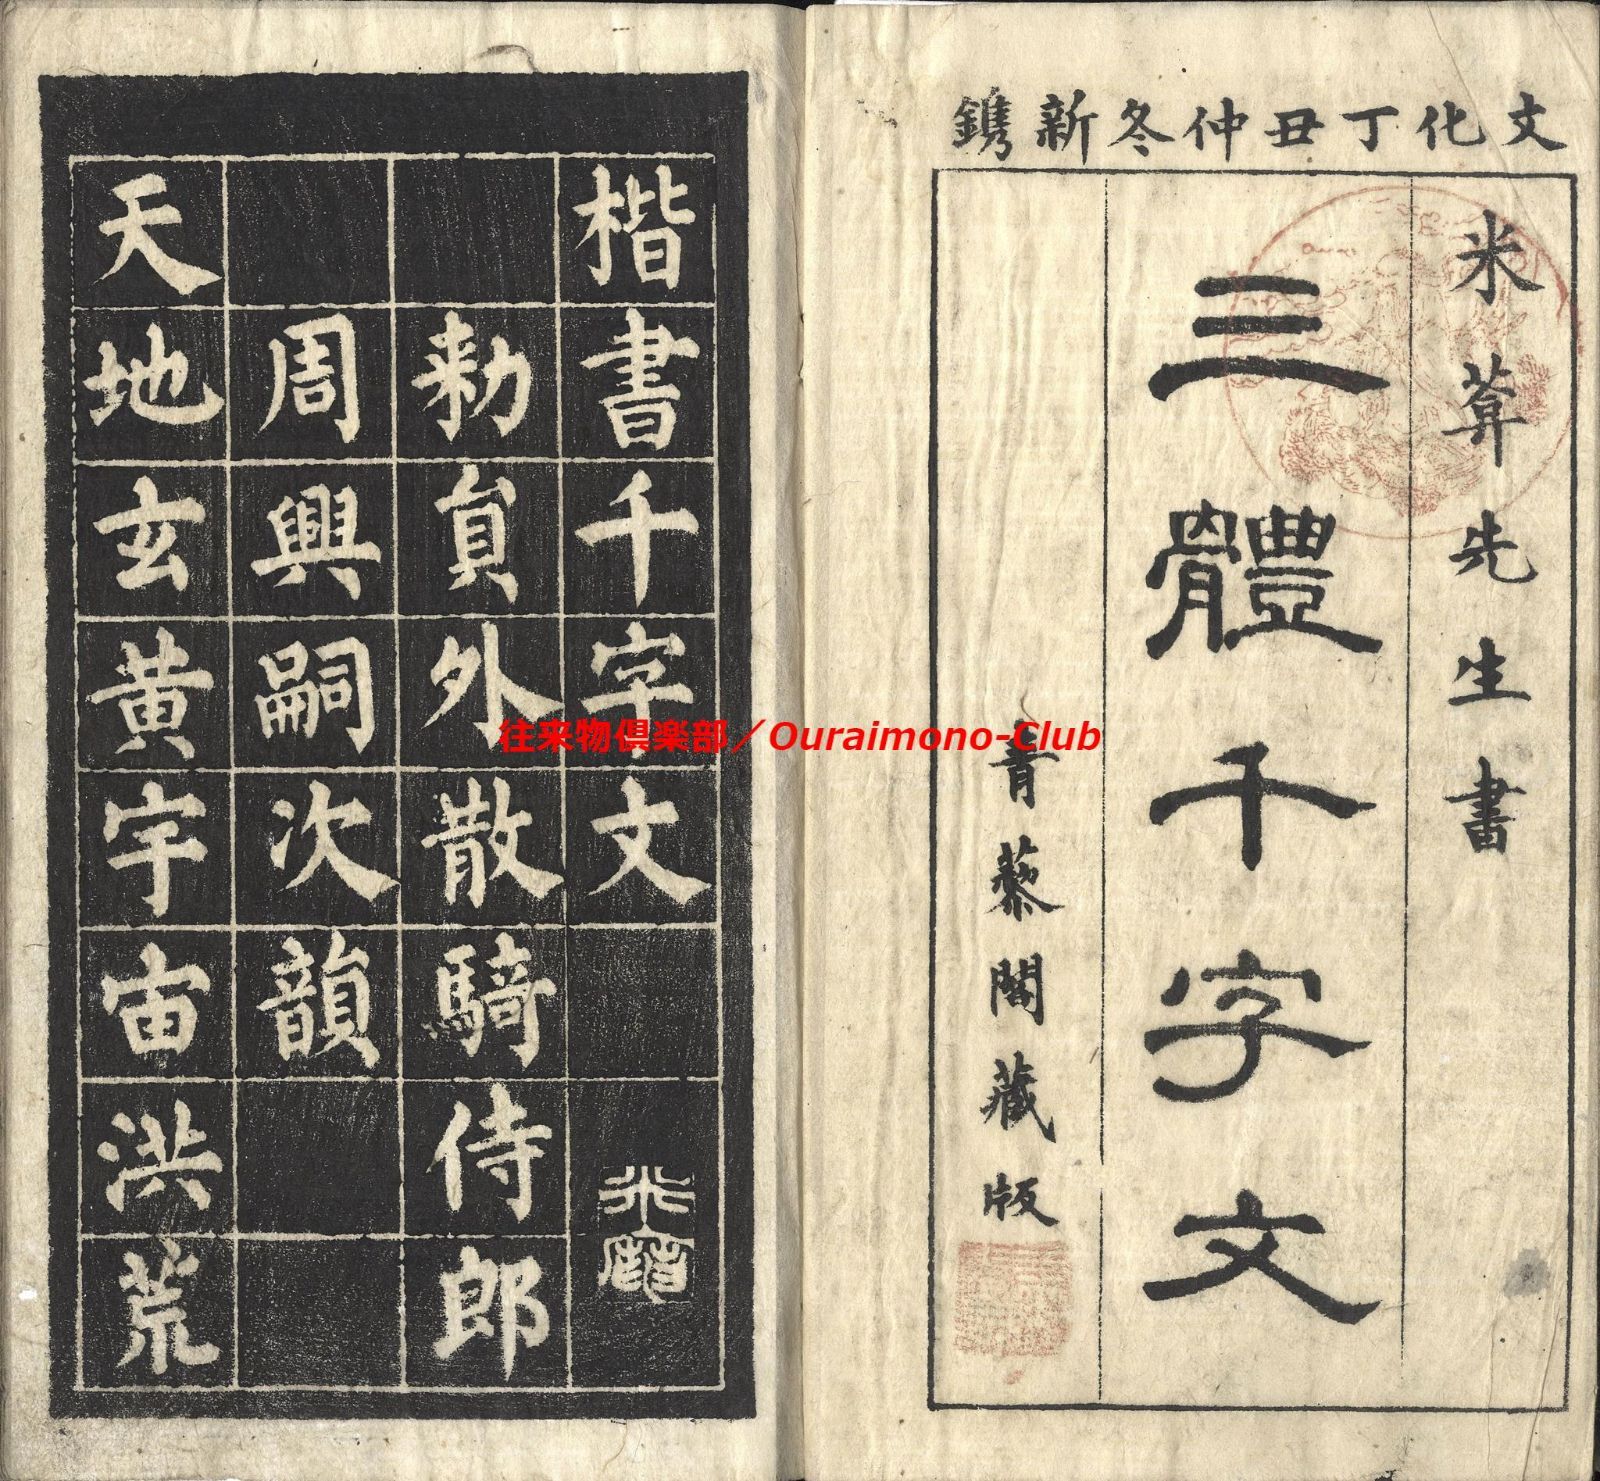 文化丁丑仲冬新鐫
米葊先生書
三體千字文
青藜閣藏版
楷書千字文
勑員外散騎侍郎
周興嗣次韻
天地玄黃宇宙洪荒
往来物倶楽部／Ouraimono-Club